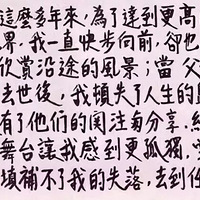 這麼多年來，為了達到更高
界，我一直快步向前，卻也
欣賞沿途的風景；當父
去世後，我頓失了人生的
有了他們的關注與分享，
舞台讓我感到更孤獨，
填補不了我的失落，去到任